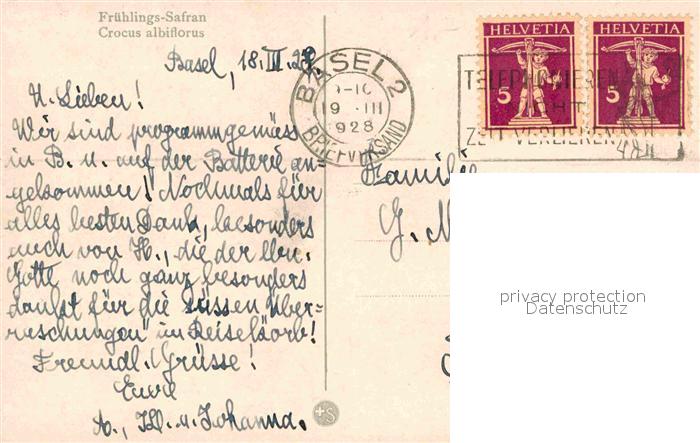 Frühlings-Safran
Crocus albiflorus
Basel, 18. III. 28
M. Lieben!
Wir sind programmgemäss
in B. u. auf der Batterie an-
gekommen! Nochmals für
alles besten Dank, besonders
auch von H., die der
Gotte noch ganz besonders
dankt für die "süssen Über-
raschungen" im Reisekorb!
Freundl. Grüsse!
Eure
A., Hd. u. Johanna.
BASEL 2
19 III
1928
BRIEFVERSAND
HELVETIA
5
HELVETIA
5
TELEPHONIEREN
ZEIT VERLIEREN
Familie
G.
privacy protection
Datenschutz
+S